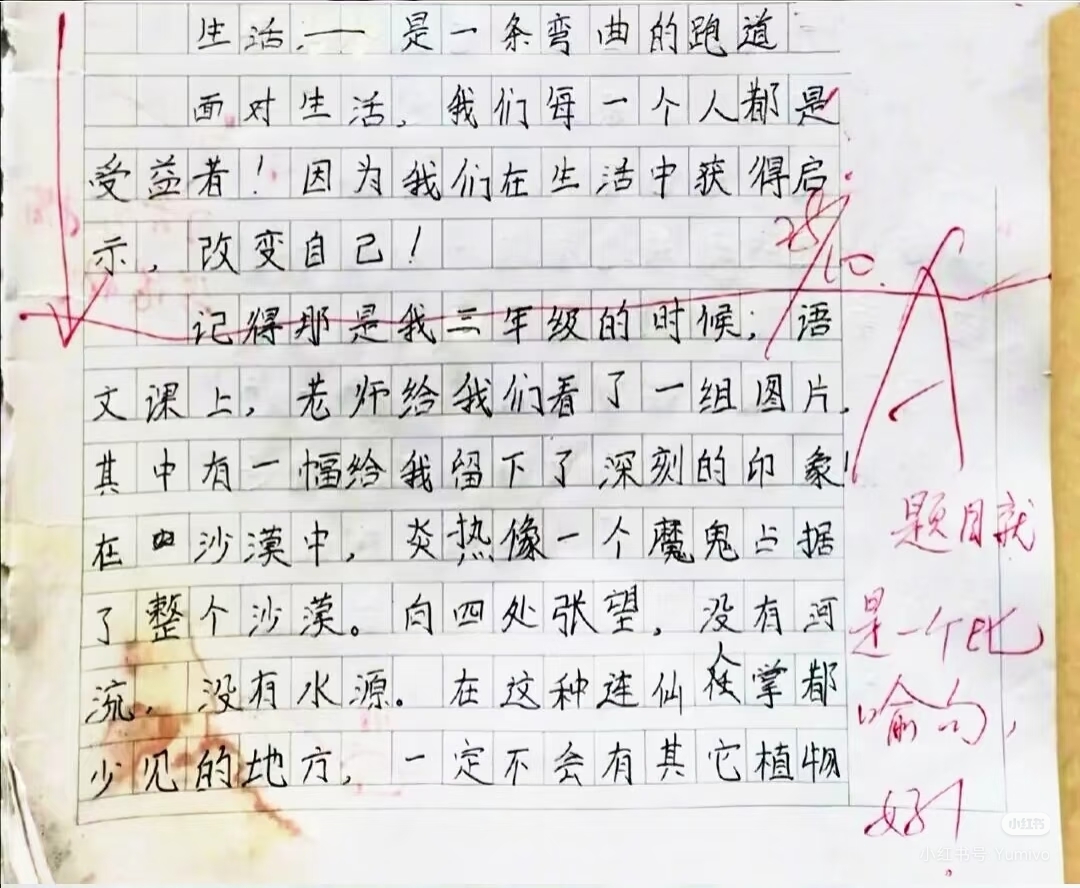 生活,——是一条弯曲的跑道
面对生活,我们每一个人都是
受益者!因为我们在生活中获得启
示,改变自己!
记得那是我三年级的时候;语
文课上,老师给我们看了一组图片,
其中有一幅给我留下了深刻的印象!
在沙漠中,炎热像一个魔鬼占据
了整个沙漠。向四处张望,没有河
流,没有水源。在这种连仙人掌都
少见的地方,一定不会有其它植物
25/10.
A-
题目就
是一个比
喻句,
好!
小红书
小红书号 Yumivo